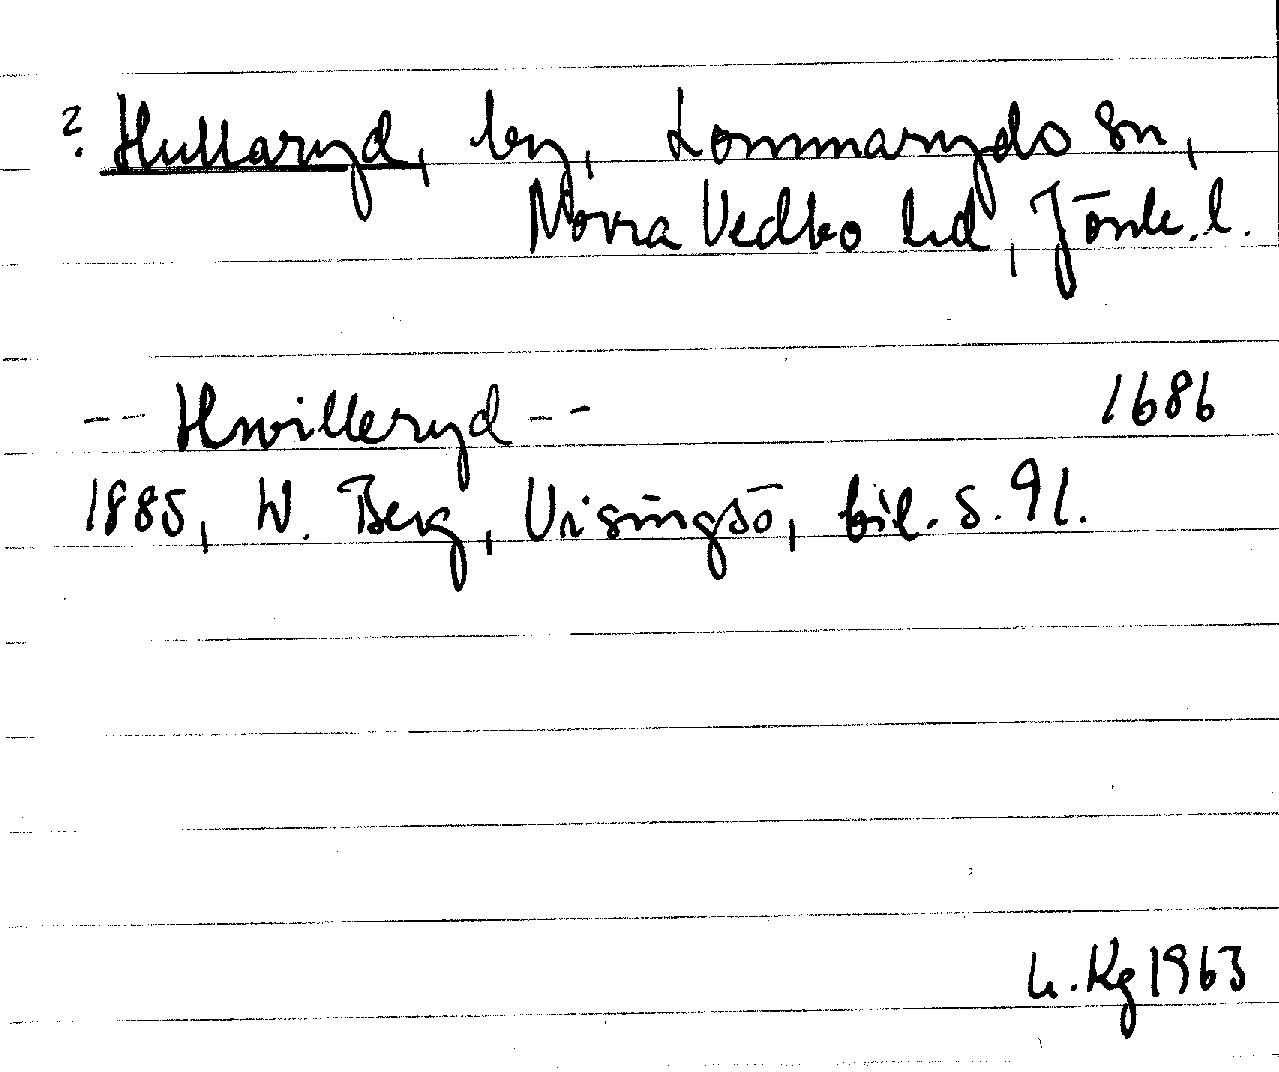 ? Hullaryd, by, Lommaryds sn,
Norra Vedbo hd, Jönk. l.
-- Hwilleryd -- 1686
1885, W. Berg, Visingsö, bil. s. 91.
Kg 1963